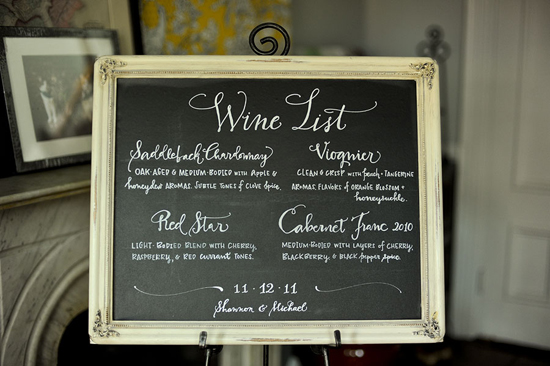 Wine List
Saddleback Chardonnay
OAK-AGED & MEDIUM-BODIED WITH APPLE &
honeydew AROMAS. SUBTLE TONES OF CLOVE SPICE.
Viognier
CLEAN & CRISP WITH peach & TANGERINE
AROMAS, FLAVORS OF ORANGE BLOSSOM &
honeysuckle.
Red Star
LIGHT-BODIED BLEND WITH CHERRY,
RASPBERRY, & RED CURRANT TONES.
Cabernet Franc 2010
MEDIUM-BODIED WITH LAYERS OF CHERRY,
BLACKBERRY, & BLACK pepper spice.
11·12·11
Shannon & Michael